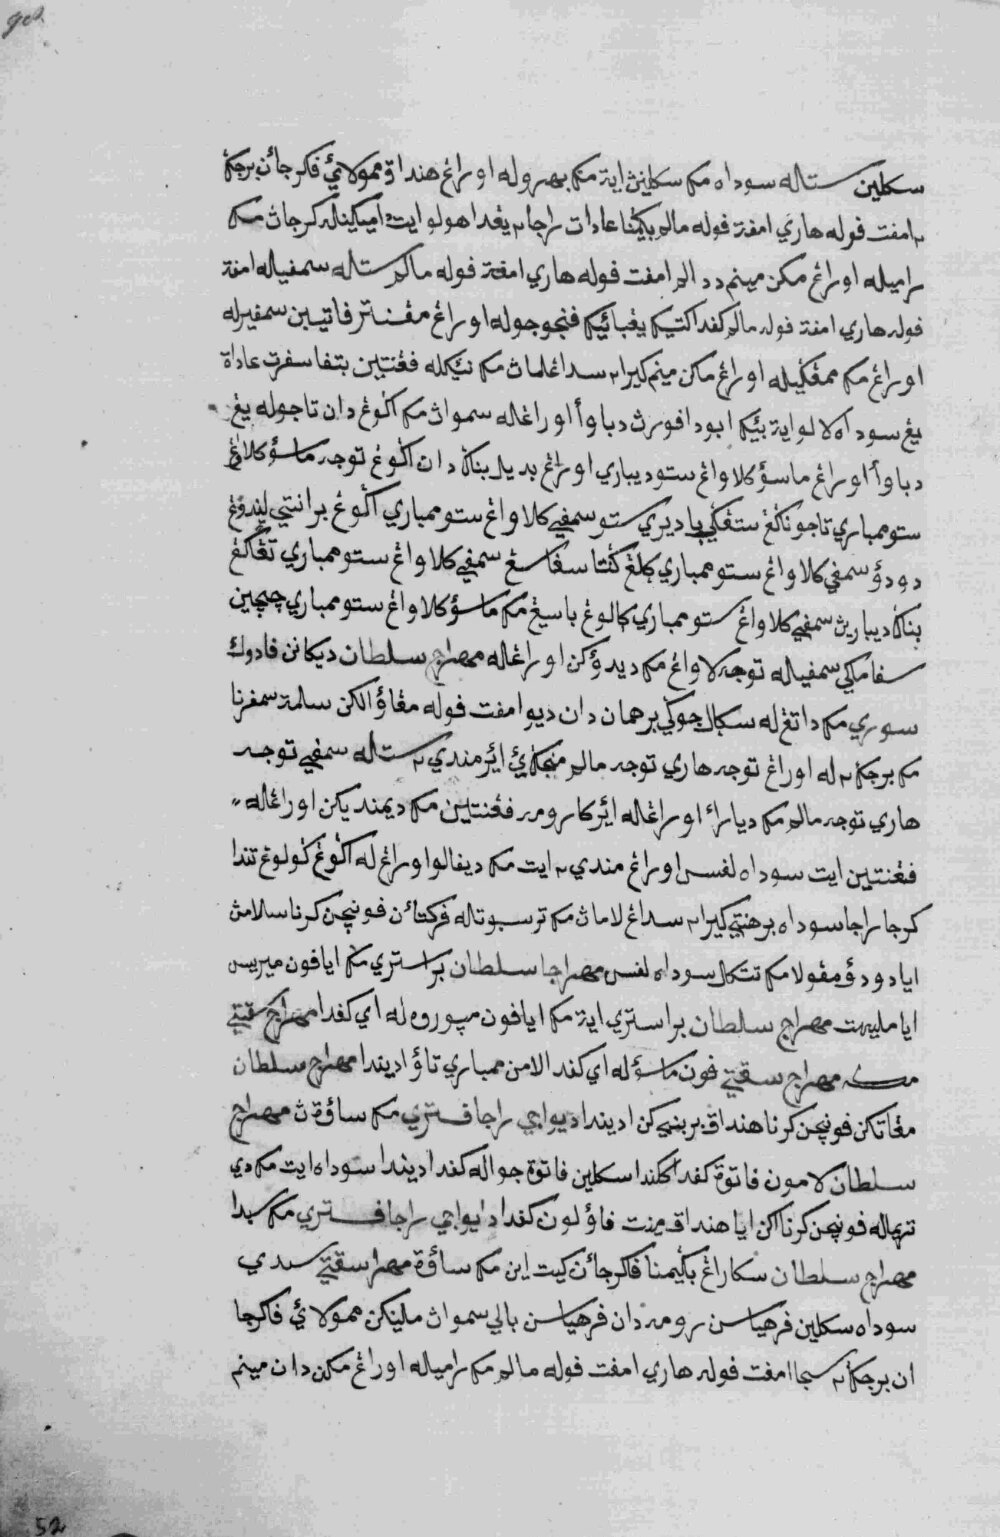 سكلين ستاله سوداه مك سكلينڽ ايت مك بهروله اورڠ هندق ممولاءي فكرجاءن برجاݢ
٢ امفت فوله هاري امفت فوله مالم بݢيمان عادات راجا٢ يڠ داهولو ايت دميكينله كرجاڽ مك
راميله اورڠ مكن مينم د دالم امفت فوله هاري امفت فوله مالم ستله سمفيله امفت
فوله هاري امفت فوله مالم كفد اكتيك يڠ باءيك فنجوجوله اورڠ مڠنتر فاتيبن سمفيرله
اورڠ مك ممڠݢيله اورڠ ماكن مينم كيرا٢ سداڠ لماڽ مك نايكله فڠنتين بتفا سفرت عادة
يڠ سوداه لالو ايت بءيك ابودافورڽ دباوأ اورڠله سمواڽ مك اݢوڠ دان تاجوله يڠ
دباوأ اورڠ ماسؤ كلاواڠ ستو ديباري اورڠ بديل بناݢ دان اݢوڠ توجه ماسؤ كلاواڠ
ستو ممباري تاجو ناݢڠ ستڠݢي ڤاديري ستو سمفي كلاواڠ ستو ممباري اݢوڠ برانتي ليندوڠ
دودؤ سمفي كلاواڠ ستو ممباري ݢلڠ ݢنتا سفاسڠ سمفي كلاواڠ ستو ممباري تڠݢڠ
بناݢ ديبارين سمفي كلاواڠ ستو ممباري كالوڠ باسيڠ مك ماسؤ كلاواڠ ستو ممباري چنچين
سفامݢي سمفياله توجه لاواڠ مك ديدؤكن اورڠله مهراج سلطان ديكانن فادوك
سوري مك داتڠله سكال جوݢي برهمان دان ديوا مفت فوله مڠاؤالكن سلامة سمفرنا
مك برجاݢ٢ له اورڠ توجه هاري توجه مالم منجاݢاءي اءير مندي٢ ستله سمفي توجه
هاري توجه مالم مك دياراء اورڠله اءير كارومه فڠنتين مك ديمنديكن اورڠله
فڠنتين ايت سوداه لفس اورڠ مندي٢ ايت مك ديفالو اورڠله اݢوڠ ݢولوڠ تندا
كرجا راجا سوداه برهنتي كيرا٢ سداڠ لاماڽ مك ترسبوتله فركتاءن فونچن كرنا سلامڽ
ايا دودؤ مڠولا مك تتكال سوداه لفس مهراجا سلطان براستري مك ايافون ميريس
ايا مليهت مهراج سلطان براستري ايت مك ايافون مپوروه له اي كفدا مهراج سقتي
مك مهراج سقتي فون ماسؤله اي كدالامن ممباري تاؤ اديندا مهراج سلطان
مڠاتكن فونچن كرنا هندق بربيني كن اديندا ديواجي راجا فستري مك ساؤة ڽ مهراج
سلطان لامون فاتوة كفد ككندا سكلين فاتوة جواله كفدا اديندا سوداه ايت مك دي
تريماله فونچن كرنا اكن ايا هندق مينت فاؤلون كفدا دايواجي راجا فستري مك سبدا
مهراج سلطان سكارڠ بݢيمنا فاكرجاءن كيت اين مك ساؤة مهراج سقتي سدي
سوداه سكلين فرهياسن رومه دان فرهياسن بالي سمواڽ ملينكن ممولاءي فاكرجا
ان برجاݢ٢ سجا امفت فوله هاري امفت فوله مالم مك راميله اورڠ مكن دان مينم
52